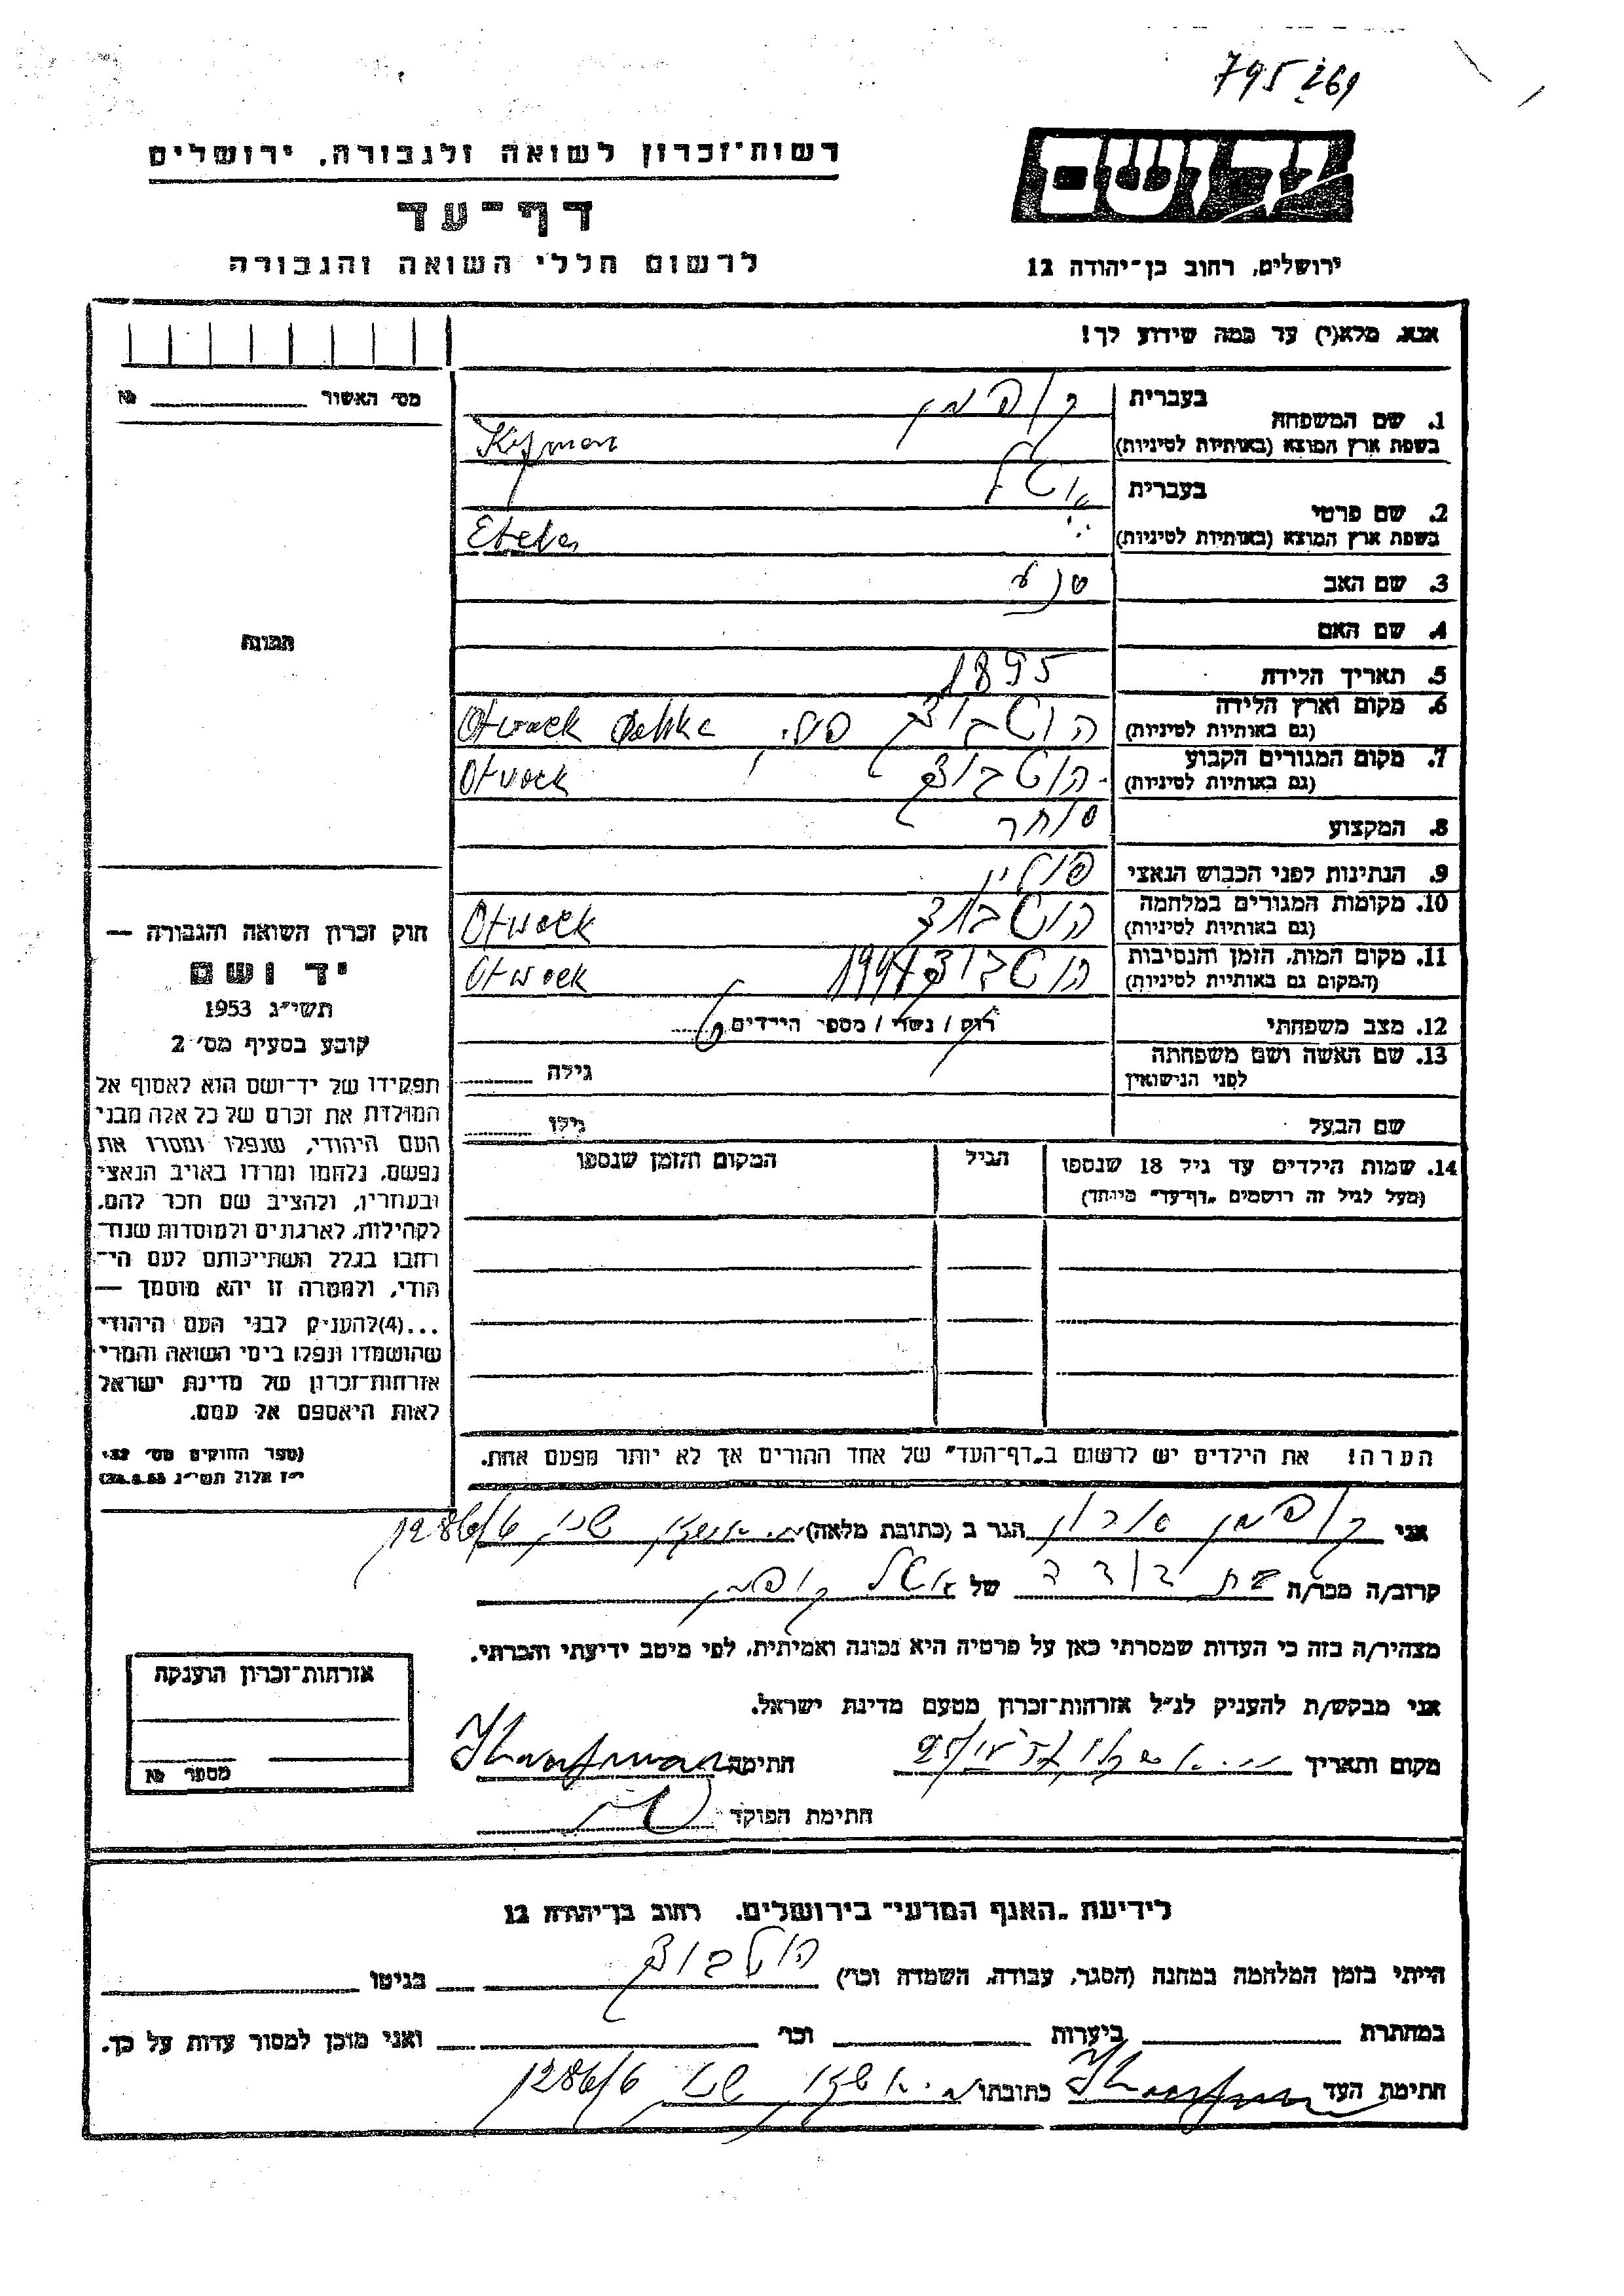 795 269
רשות־זכרון לשואה ולגבורה, ירושלים
דף־עד
לרשום חללי השואה והגבורה
יד ושם
ירושלים, רחוב בן־יהודה 12
אנא, מלא(י) עד כמה שידוע לך!
מס׳ האשור № 
1. שם המשפחה בעברית קופמן
בשפת ארץ המוצא (באותיות לטיניות)
2. שם פרטי בעברית
בשפת ארץ המוצא (באותיות לטיניות)
3. שם האב
4. שם האם
תמונה
5. תאריך הלידה 1895
6. מקום וארץ הלידה הוטבוצק Otwock
(גם באותיות לטיניות)
7. מקום המגורים הקבוע הוטבוצק Otwock
(גם באותיות לטיניות)
8. המקצוע סוחר
9. הנתינות לפני הכבוש הנאצי פולין
10. מקומות המגורים במלחמה הוטבוצק Otwock
(גם באותיות לטיניות)
11. מקום המות, הזמן והנסיבות הוטבוצק Otwock
(המקום גם באותיות לטיניות)
12. מצב משפחתי רוק / נשוי / מספר הילדים
13. שם האשה ושם משפחתה לפני הנישואין גילה
שם הבעל גילו
14. שמות הילדים עד גיל 18 שנספו הגיל המקום והזמן שנספו
(מעל לגיל זה רושמים „דף־עד״ מיוחד)
חוק זכרון השואה והגבורה —
יד ושם
תשי״ג 1953
קובע בסעיף מס׳ 2
תפקידו של יד־ושם הוא לאסוף אל
המולדת את זכרם של כל אלה מבני
העם היהודי, שנפלו ומסרו את
נפשם, נלחמו ומרדו באויב הנאצי
ובעוזריו, ולהציב שם וזכר להם,
לקהילות, לארגונים ולמוסדות שנח־
רחבו בגלל השתייכותם לעם הי־
הודי, ולמטרה זו יהא מוסמך —
...(4)להעניק לבני העם היהודי
שהושמדו ונפלו בימי השואה והמרי
אזרחות־זכרון של מדינת ישראל
לאות היאספם אל עמם.
(ספר החוקים מס׳ 132,
י״ז אלול תשי״ג 28.8.53)
הערה! את הילדים יש לרשום ב„דף־העד״ של אחד ההורים אך לא יותר מפעם אחת.
אני קופמן הגר ב (כתובת מלאה) 1286/6
קרוב/ה מכר/ה של קופמן
מצהיר/ה בזה כי העדות שמסרתי כאן על פרטיה היא נכונה ואמיתית, לפי מיטב ידיעתי והכרתי.
אני מבקש/ת להעניק לנ״ל אזרחות־זכרון מטעם מדינת ישראל.
מקום ותאריך חתימה
חתימת הפוקד
אזרחות־זכרון הוענקה
מספר №
לידיעת „האגף המדעי״ בירושלים, רחוב בן־יהודה 12
הייתי בזמן המלחמה במחנה (הסגר, עבודה, השמדה וכו׳) הוטבוצק בגיטו
במחתרת ביערות וכו׳ ואני מוכן למסור עדות על כך.
חתימת העד כתובתו 1286/6